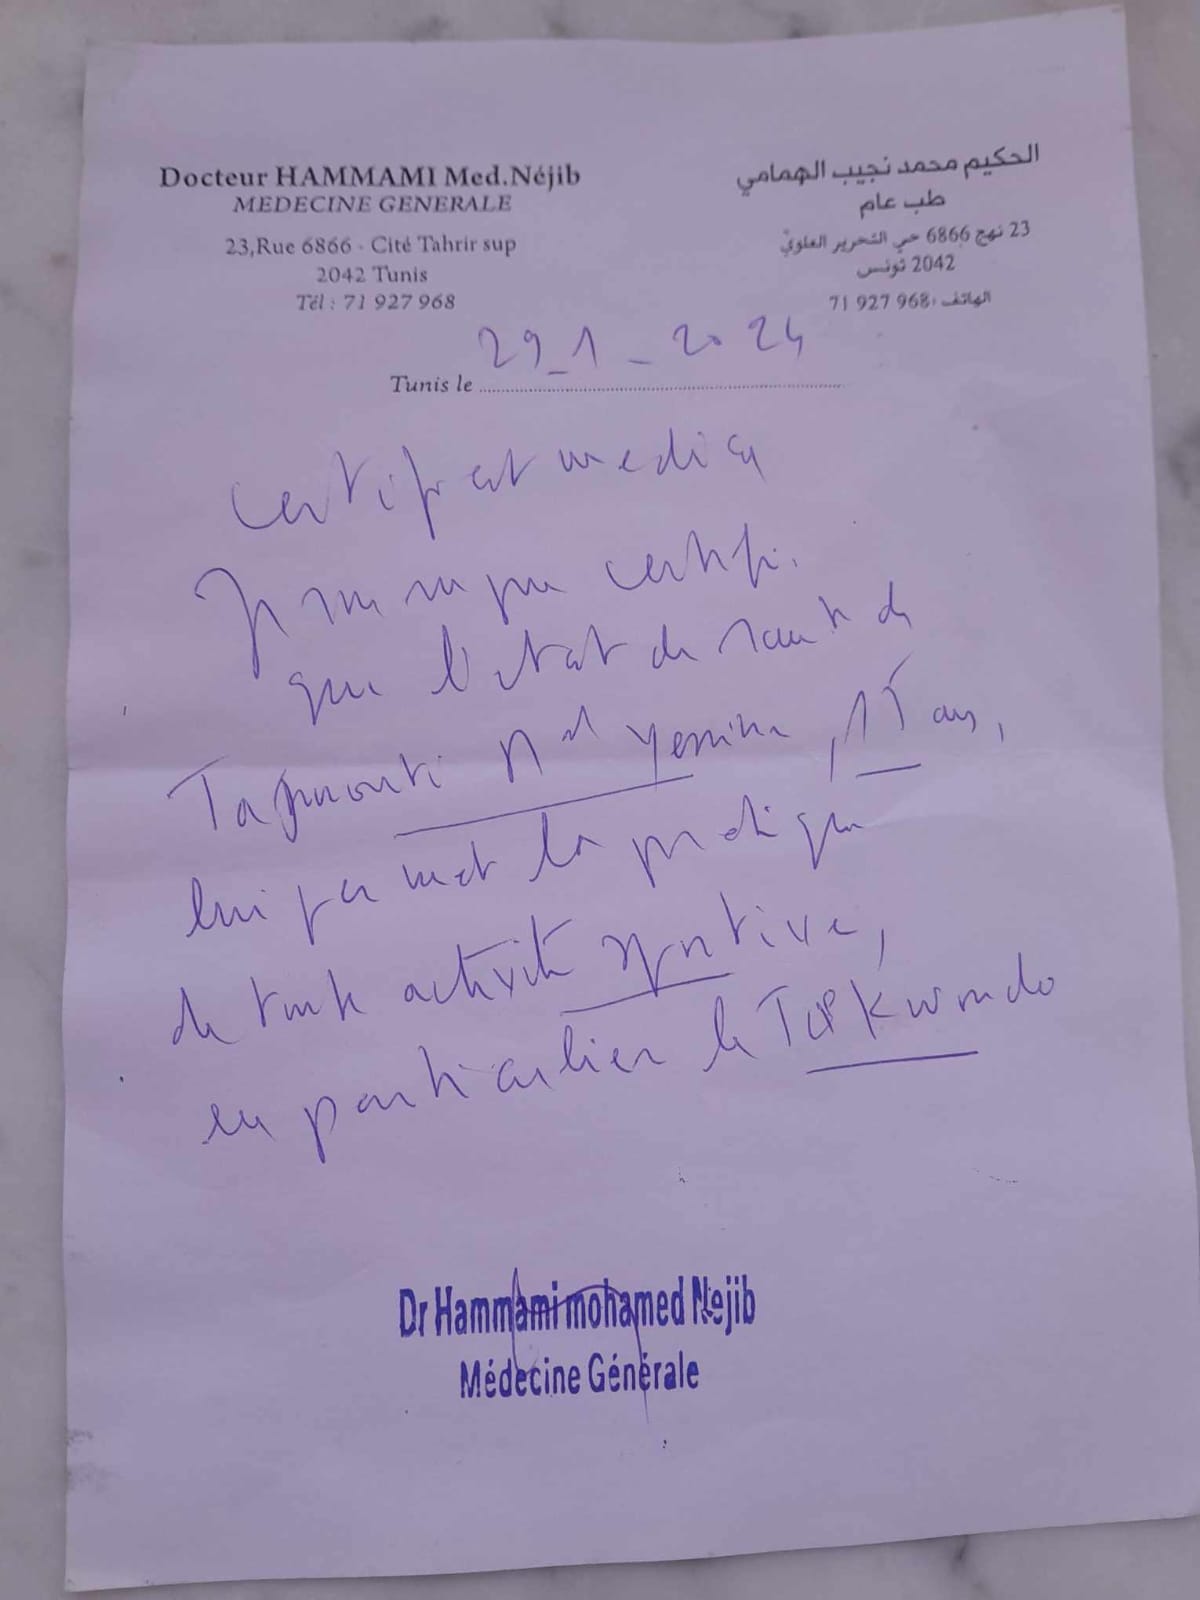 Docteur HAMMAMI Med.Néjib
MEDECINE GENERALE
23,Rue 6866 - Cité Tahrir sup
2042 Tunis
Tél : 71 927 968
الحكيم محمد نجيب الهمامي
طب عام
23 نهج 6866 حي التحرير العلوي
2042 تونس
الهاتف : 71 927 968
Tunis le 29_1_2024
Certificat medical
certifie
que l'etat de sante de
Md Yemine, 15 ans,
lui permet la pratique
de toute activité sportive,
en particulier le Taekwondo
Dr Hammami mohamed Nejib
Médecine Générale